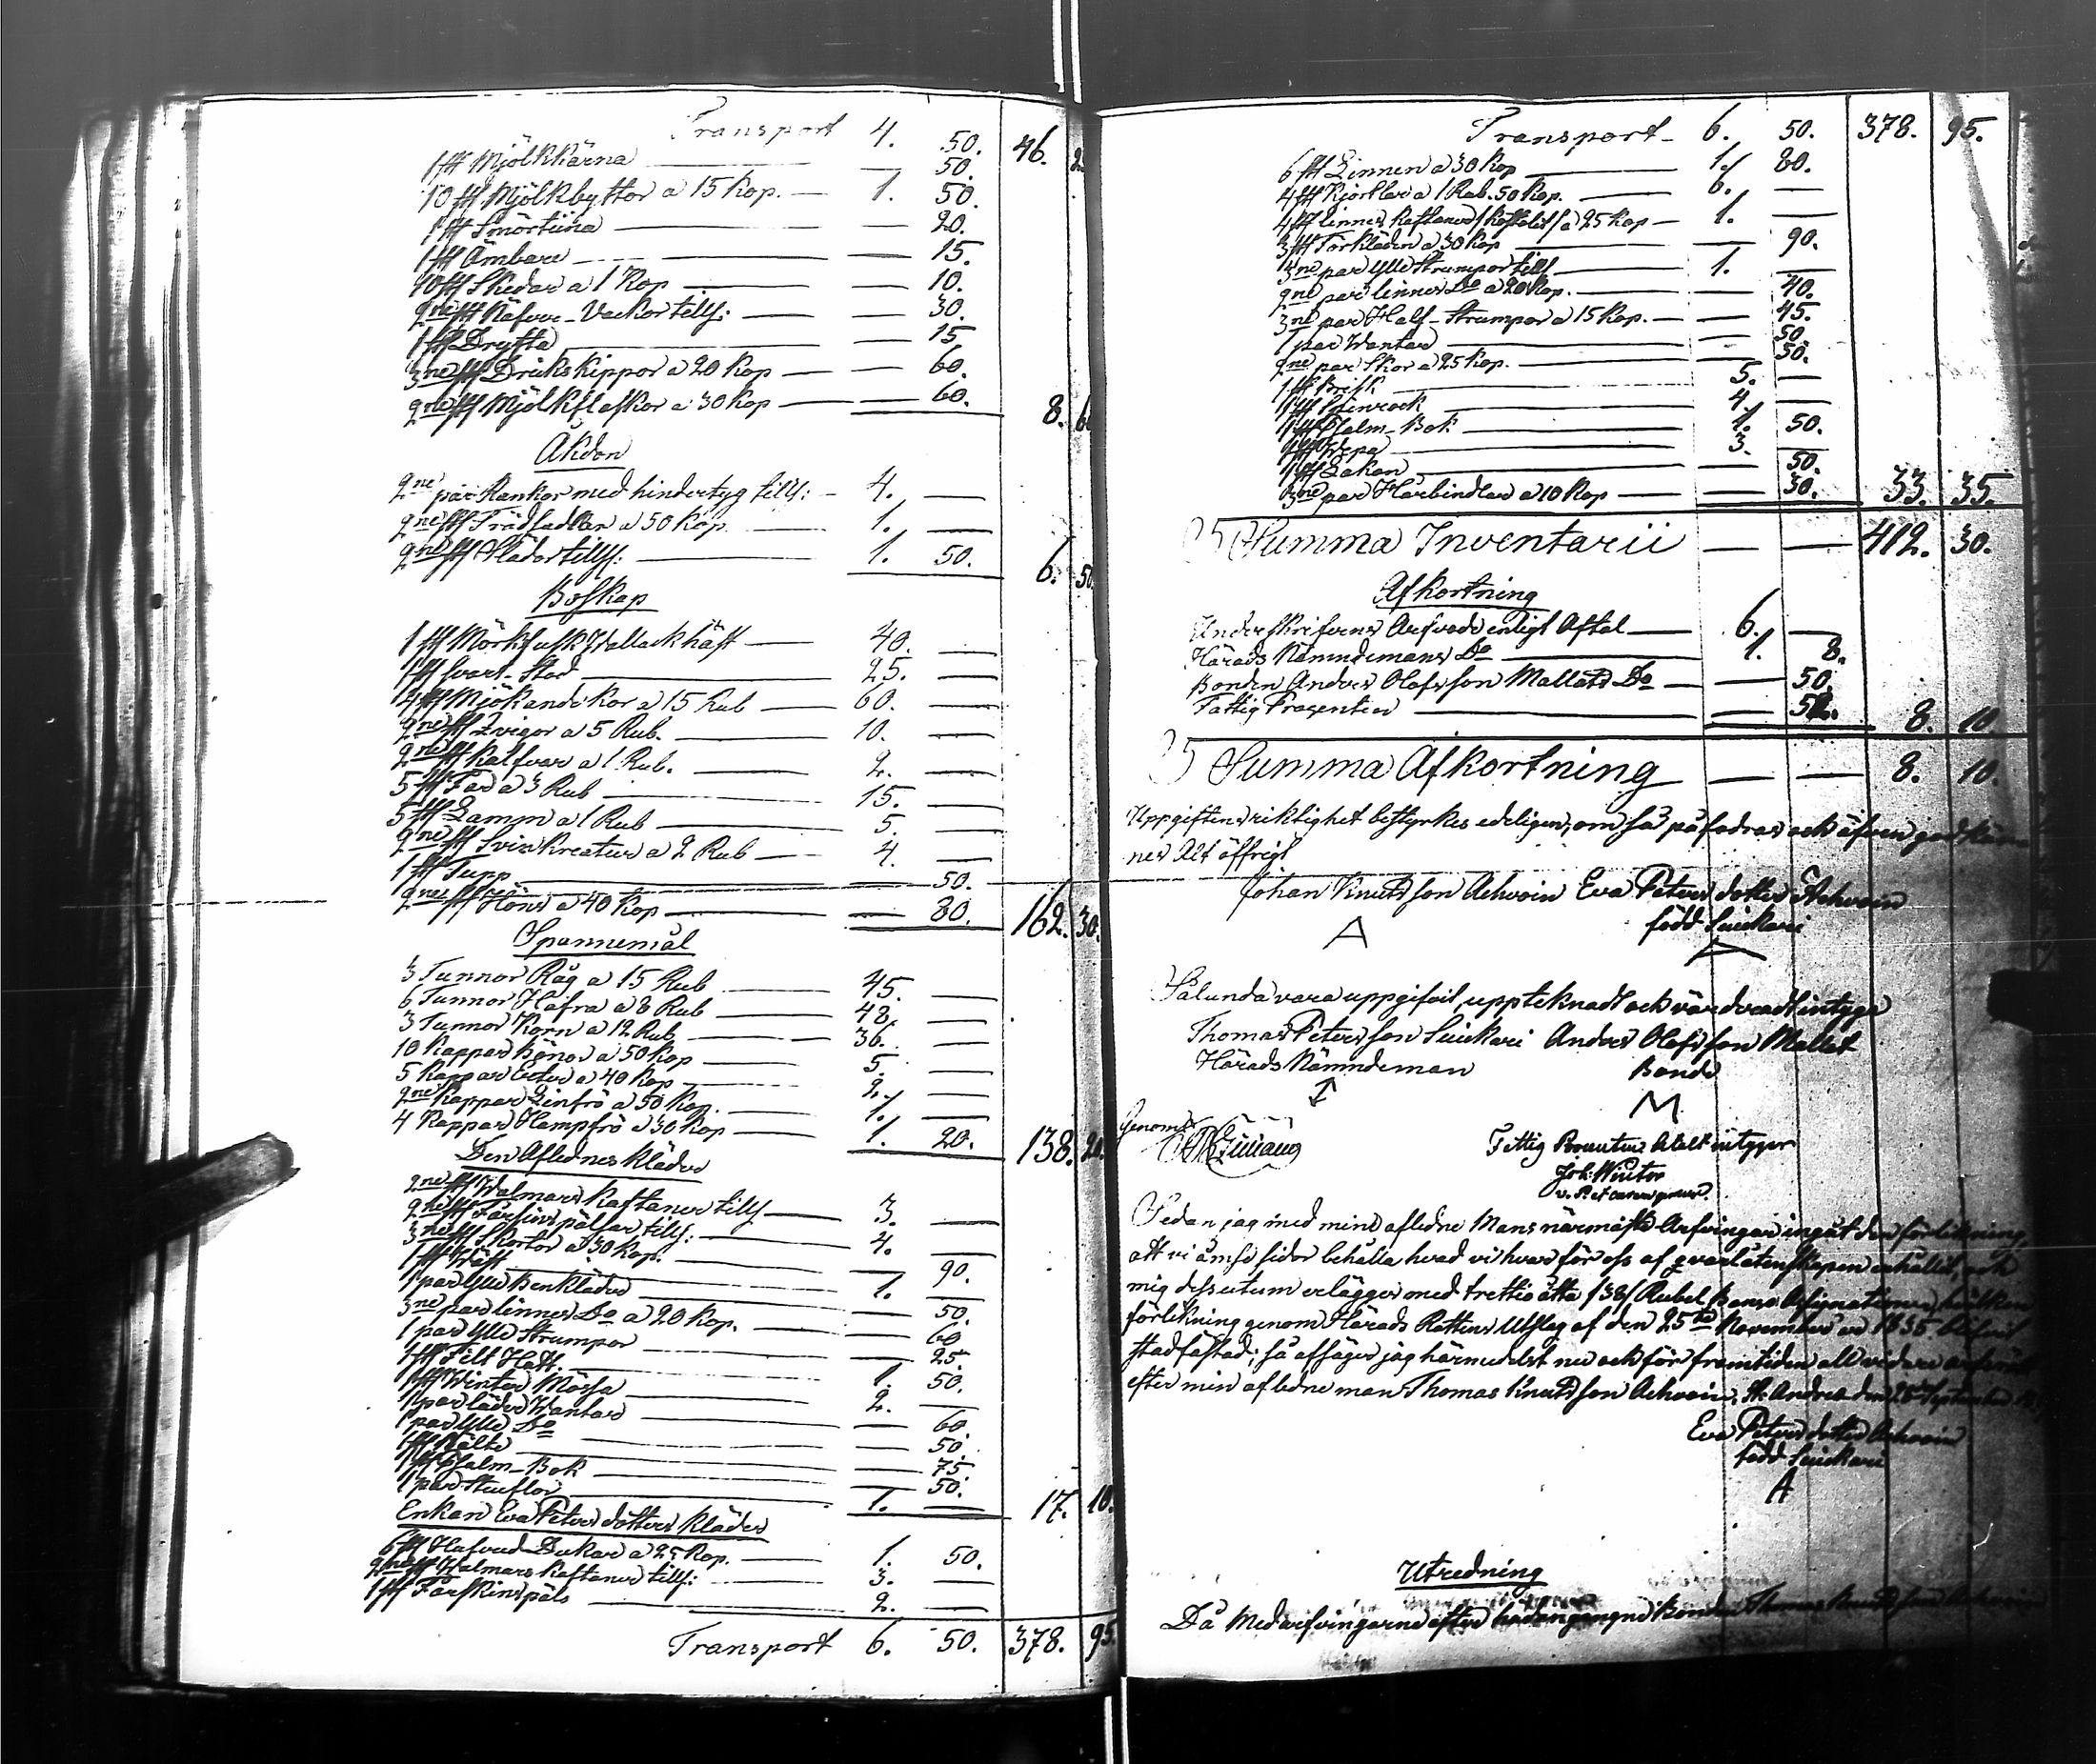 Transport 4. 50. 46.
1 st Mjölkkärna — — 50.
10 st Mjölkbyttor a 15 Kop. — 1. 50.
1 st Smörtiina — — 20.
1 st Ämbare — — 15.
10 st Skedar a 1 Kop — — 10.
2ne st Näfver-Vackor tills: — — 30.
1 st Drytta — — 15.
3ne st Drickskippor a 20 Kop — — 60.
2ne st Mjölkflaskor a 30 Kop — — 60. 8. 60
Åkdon
2ne par Rankor med hindertyg tills: — 4. —
2ne st Trädsadlar a 50 Kop. — 1. —
2ne st Slädar tills: — 1. 50. 6. 50
Boskap
1 st Mörkfusk Wallack häst — 40. —
1 st Svart Stod — 25. —
4 st Mjökande Kor a 15 Rub — 60. —
2ne st Qvigor a 5 Rub. — 10. —
2ne st Kalfvar a 1 Rub. — 2. —
5 st Får a 3 Rub — 15. —
5 st Lamm a 1 Rub — 5. —
2ne st Svin kreatur a 2 Rub — 4. —
1 st Tupp — — 50.
2ne st Höns a 40 Kop — — 80. 162. 30.
Spannemål
3 Tunnor Råg a 15 Rub — 45. —
6 Tunnor Hafra a 8 Rub — 48. —
3 Tunnor Korn a 12 Rub — 36. —
10 Kappar Bönor a 50 Kop — 5. —
5 Kappar Erter a 40 Kop — 2. —
2ne Kappar Linfrö a 50 Kop. — 1. —
4 Kappar Hampfrö a 30 Kop — 1. 20. 138. 20.
Den Aflednes kläder
2ne st Walmars Kaftaner tills — 3. —
2ne st Fårskins pälsar tills: — 4. —
3ne st Skortor a 30 Kop. — — 90.
1 st Wäst — 1. —
1 par Ylle Benkläder — — 50.
3ne par linnes Do a 20 Kop. — — 60
1 par Ylle Strumpor — — 25.
1 st Filt Hatt. — 1. 50.
1 st Winter Mössa — 2. —
1 par läder Wantar — — 60.
1 par Ylle Do — — 50.
1 st Bälte — — 75
1 st Psalm-Bok — — 50.
1 par Stöflor — 1. — 17. 10.
Enkan Eva Peters dotters kläder
6 st Hufvud Dukar a 25 Kop. — 1. 50.
2ne st Walmars Kaftaner tills: — 3. —
1 st Fårskins päls — 2. —
Transport 6. 50. 378. 95.
Transport — 6. 50. 378. 95.
6 st Linnen a 30 Kop — 1. 80.
4 st Kjortlar a 1 Rub. 50 Kop. — 6. —
4 st linnes Kaftaner a 25 Kop — 1. —
3 st Förkläden a 30 Kop — — 90.
par Ylle Strumpor tills — 1. —
2ne par linnes Do a 20 Kop. — — 40.
3ne par Half-Strumpor a 15 Kop. — — 45.
1 par Wantar — — 50.
2ne par Skor a 25 Kop. — — 50.
1 st — 5. —
1 st — 4. —
1 st Psalm-Bok — 1. 50.
1 st Wepa — 3. —
1 st Lakan — — 50.
3ne par Hårbindlar a 10 Kop — — 30. 33. 35.
Summa Inventarii — — 412. 30.
Afkortning
Underskrifvens Arfvode enligt Aftal — 6. —
Härads Nämndemans Do — 1. 8.
Bonden Anders Olofs son Mallats Do — — 50.
Fattig Procenten — — 52. 8. 10.
Summa Afkortning — — 8. 10.
Uppgiftens riktighet bestyrkes edeligen, om så påfodras ock äfven godkän
nes Alt öffrigt
Johan Knuts son Achvoin Eva Peters dotter Achvoin
född Suikari
A
Sålunda vara uppgifvit, uppteknadt ock värderadt intyga
Thomas Peters son Suikari Anders Olofs son Mallat
Härads Nämndeman Bonde
M
Genom
Fattig Procenten intyger
Joh. Winter
Sedan jag med mins afledne Mans närmaste Arfvingar ingåt den förlikning,
att vi å ömse sidor behålla hvad vi hvar för oss af qvarlåtenskapen erhållit, och
mig dessutom erlägges med trettio åtta /38/ Rubel Banco Assignationer, hvilken
förlikning genom Härads Rättens Utslag af den 25te November 1835 blifvit
stadfästad; så afsäger jag härmedelst nu ock för framtiden all vidare
efter min afledne man Thomas Knuts son Achvoin. St. Andrea den 25 September
Eva Peters dotter Achvoin
född Suikari
A
Utredning
Då Medarfvingarne efter hädangangne Bonden Thomas